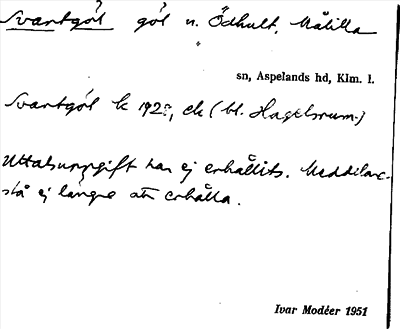 Svartgöl göl n. Ödhult, Målilla
sn, Aspelands hd, Klm. l.
Svartgöl k 192?, ek (bl. Hagelsrum.)
Uttalsuppgift har ej erhållits. Meddelare
stå ej längre att erhålla.
Ivar Modéer 1951